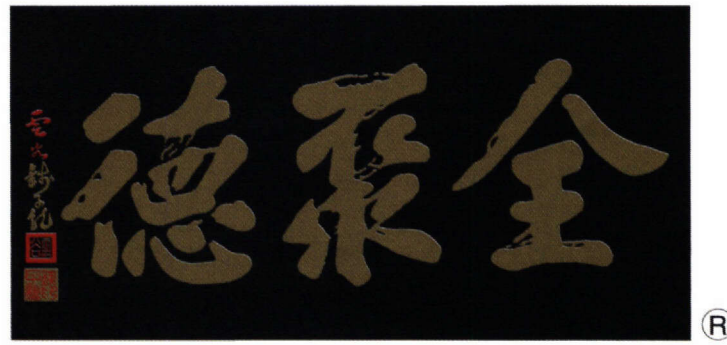 全聚德
®